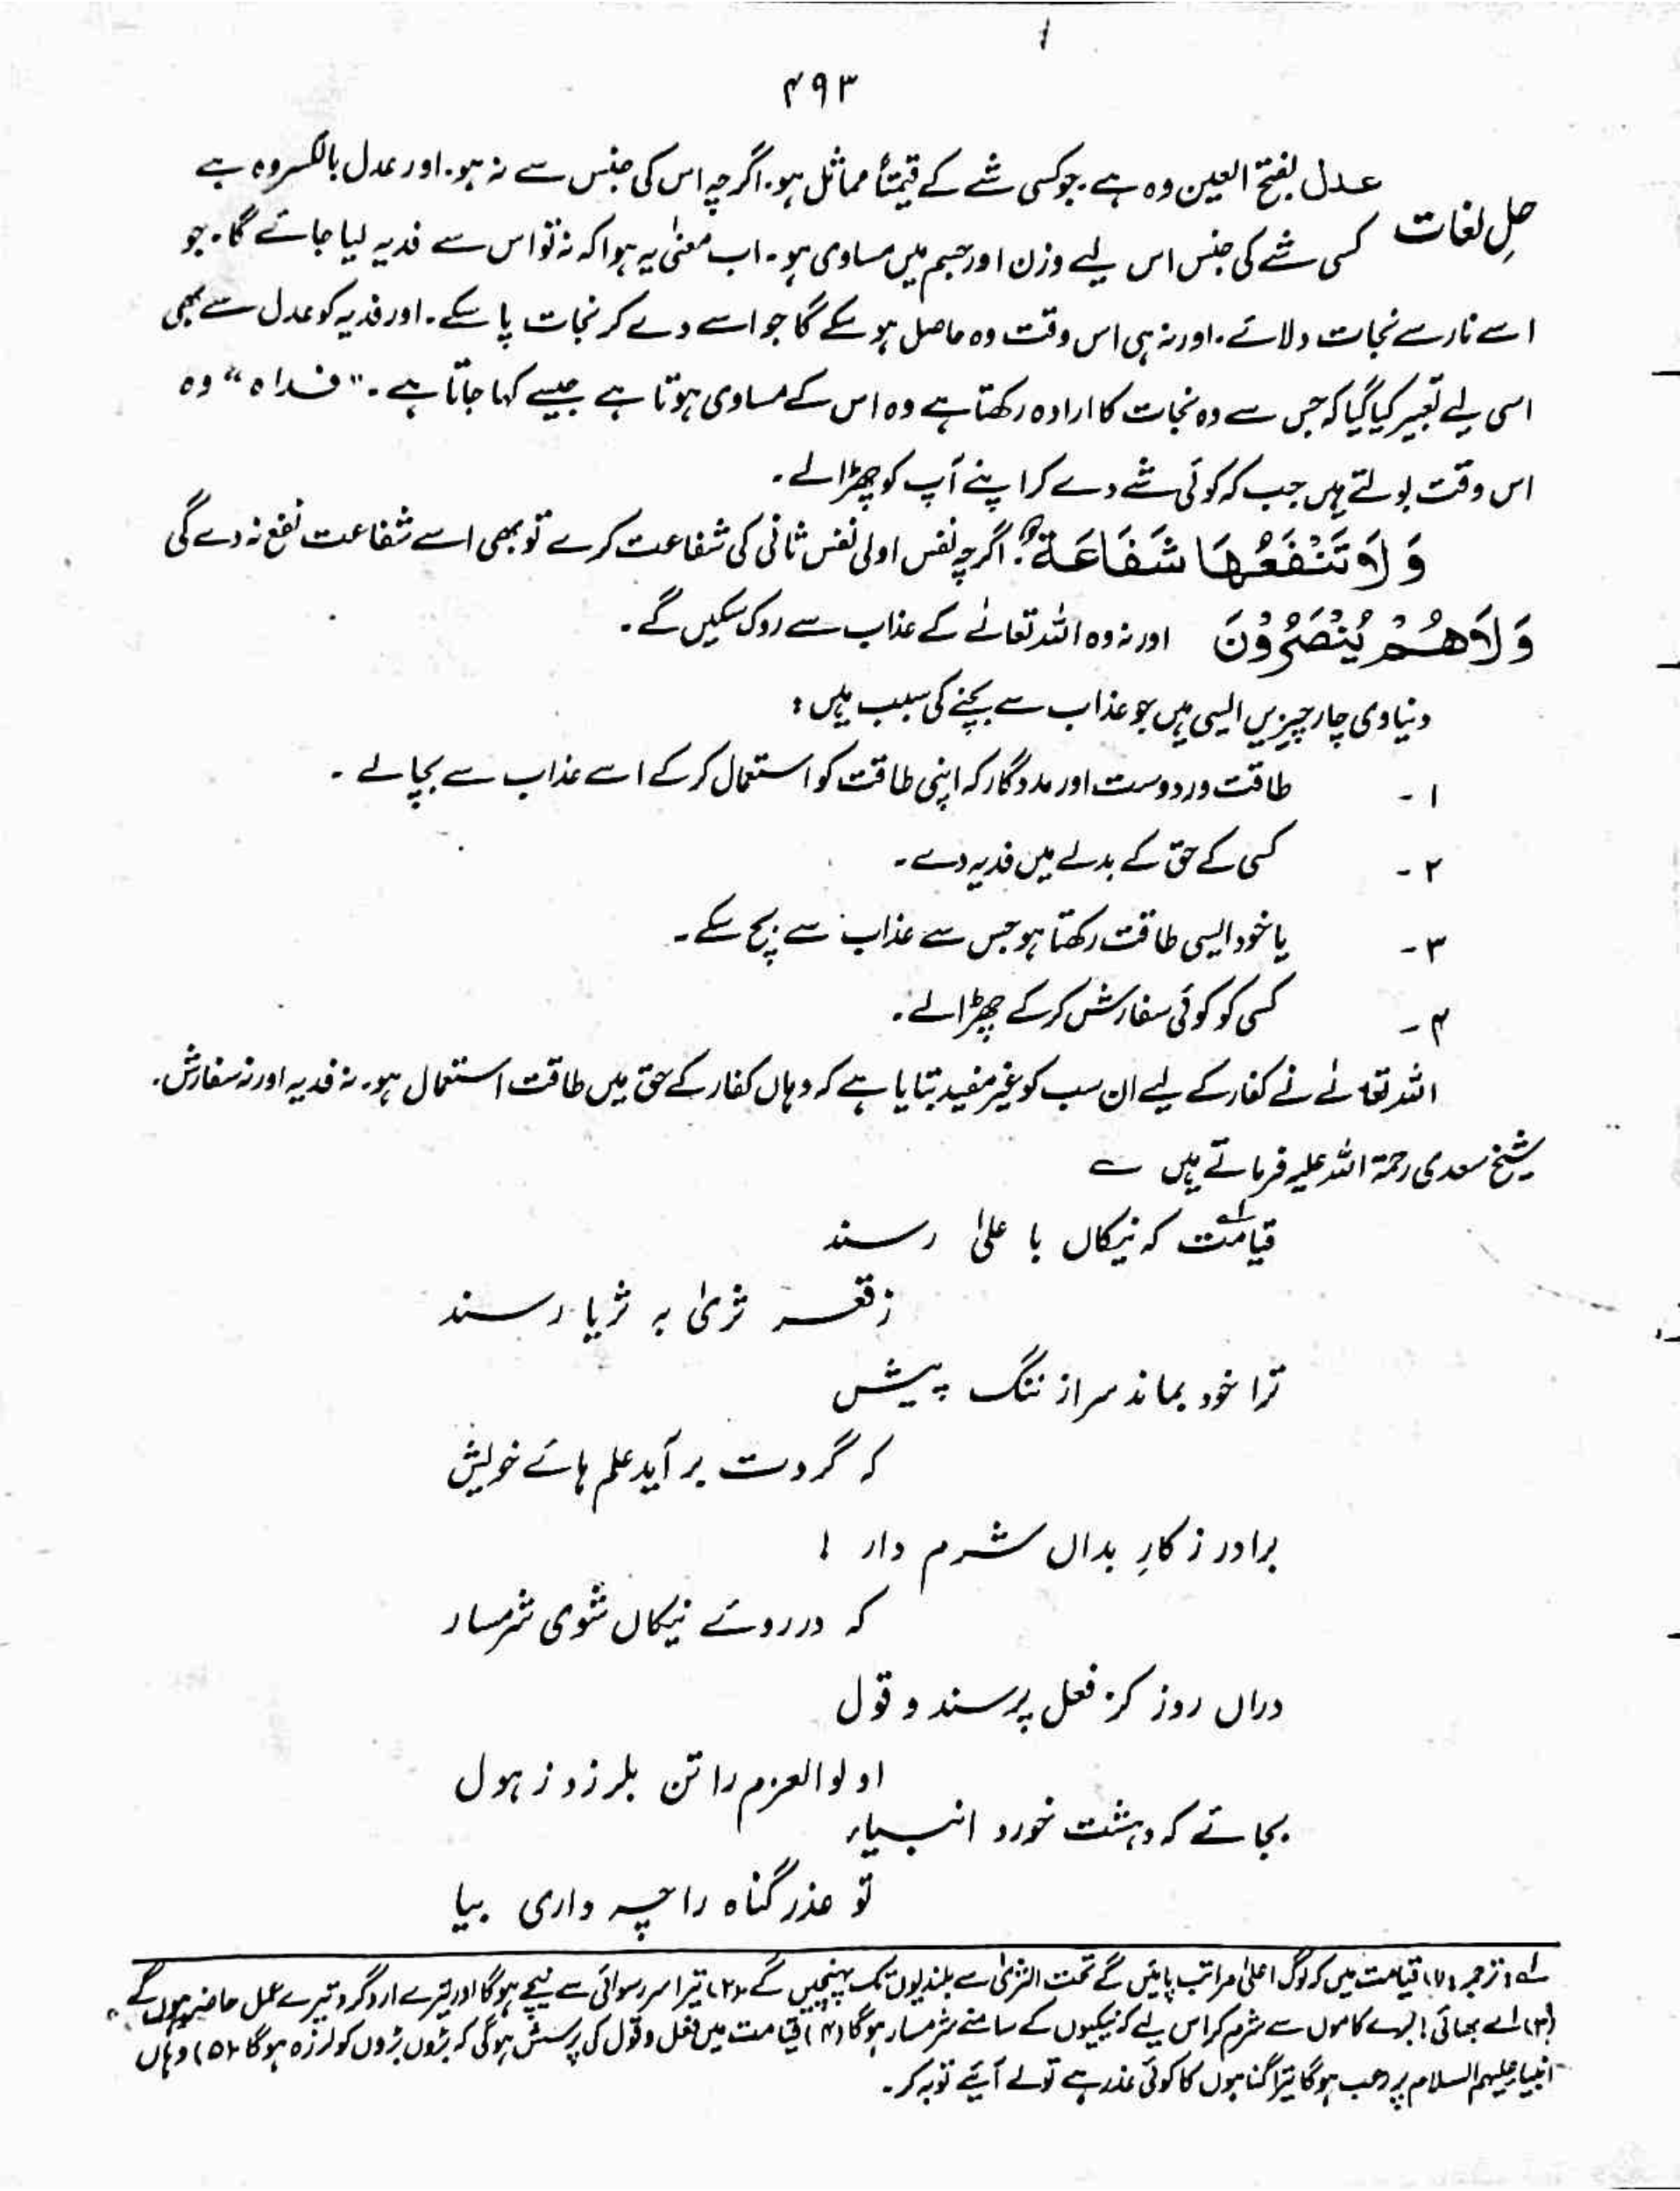 ۴۹۳
حلِ لغات
عدل بفتح العین وہ ہے۔ جو کسی شے کے قیمتاً مماثل ہو۔ اگرچہ اس کی جنس سے نہ ہو۔ اور عدل بالکسر وہ ہے
کسی شے کی جنس اس لیے وزن اور جسم میں مساوی ہو۔ اب معنیٰ یہ ہوا کہ نہ تو اس سے فدیہ لیا جائے گا۔ جو
اسے نار سے نجات دلائے۔ اور نہ ہی اس وقت وہ حاصل ہو سکے گا جو اسے دے کر نجات پا سکے۔ اور فدیہ کو عدل سے بھی
اسی لیے تعبیر کیا گیا کہ جس سے وہ نجات کا ارادہ رکھتا ہے وہ اس کے مساوی ہوتا ہے جیسے کہا جاتا ہے۔ "فداہ" وہ
اس وقت بولتے ہیں جب کہ کوئی شے دے کر اپنے آپ کو چھڑالے۔
وَلَا تَنْفَعُهَا شَفَاعَةٌ: اگرچہ نفس اولی نفس ثانی کی شفاعت کرے تو بھی اسے شفاعت نفع نہ دے گی
وَلَا هُمْ يُنْصَرُوْنَ اور نہ وہ اللہ تعالےٰ کے عذاب سے روک سکیں گے۔
دنیاوی چار چیزیں ایسی ہیں جو عذاب سے بچنے کی سبب ہیں:
۱۔ طاقت ور دوست اور مددگار کہ اپنی طاقت کو استعمال کر کے اسے عذاب سے بچالے۔
۲۔ کسی کے حق کے بدلے میں فدیہ دے۔
۳۔ یا خود ایسی طاقت رکھتا ہو جس سے عذاب سے بچ سکے۔
۴۔ کسی کو کوئی سفارش کر کے چھڑالے۔
اللہ تعالےٰ نے کفار کے لیے ان سب کو غیر مفید بتایا ہے کہ وہاں کفار کے حق میں طاقت استعمال ہو۔ نہ فدیہ اور نہ سفارش۔
شیخ سعدی رحمۃ اللہ علیہ فرماتے ہیں ؎
قیامت کہ نیکاں با علیٰ رسند
ز قعر ثریٰ بہ ثریا رسند
ترا خود بماند سر از ننگ پیش
کہ گردت بر آید علم ہائے خویش
برادر ز کارِ بداں شرم دار !
کہ در روئے نیکاں شوی شرمسار
دراں روز کز فعل پرسند و قول
اولوالعزم را تن بلرزد ز ہول
بجائے کہ دہشت خورد انبیاء
تو عذر گناہ را چہ داری بیا
لہ: ترجمہ: (۱) قیامت میں کہ لوگ اعلیٰ مراتب پائیں گے تحت الثریٰ سے بلندیوں تک پہنچیں گے (۲) تیرا سر رسوائی سے نیچے ہوگا اور تیرے ارد گرد تیرے عمل حاضر ہوں گے
(۳) اے بھائی! برے کاموں سے شرم کر اس لیے کہ نیکیوں کے سامنے شرمسار ہوگا (۴) قیامت میں فعل و قول کی پرسش ہوگی کہ بڑوں بڑوں کو لرزہ ہوگا (۵) وہاں
انبیاء علیہم السلام پر رعب ہوگا تیرا گناہوں کا کوئی عذر ہے تو لے آئیے توبہ کر۔